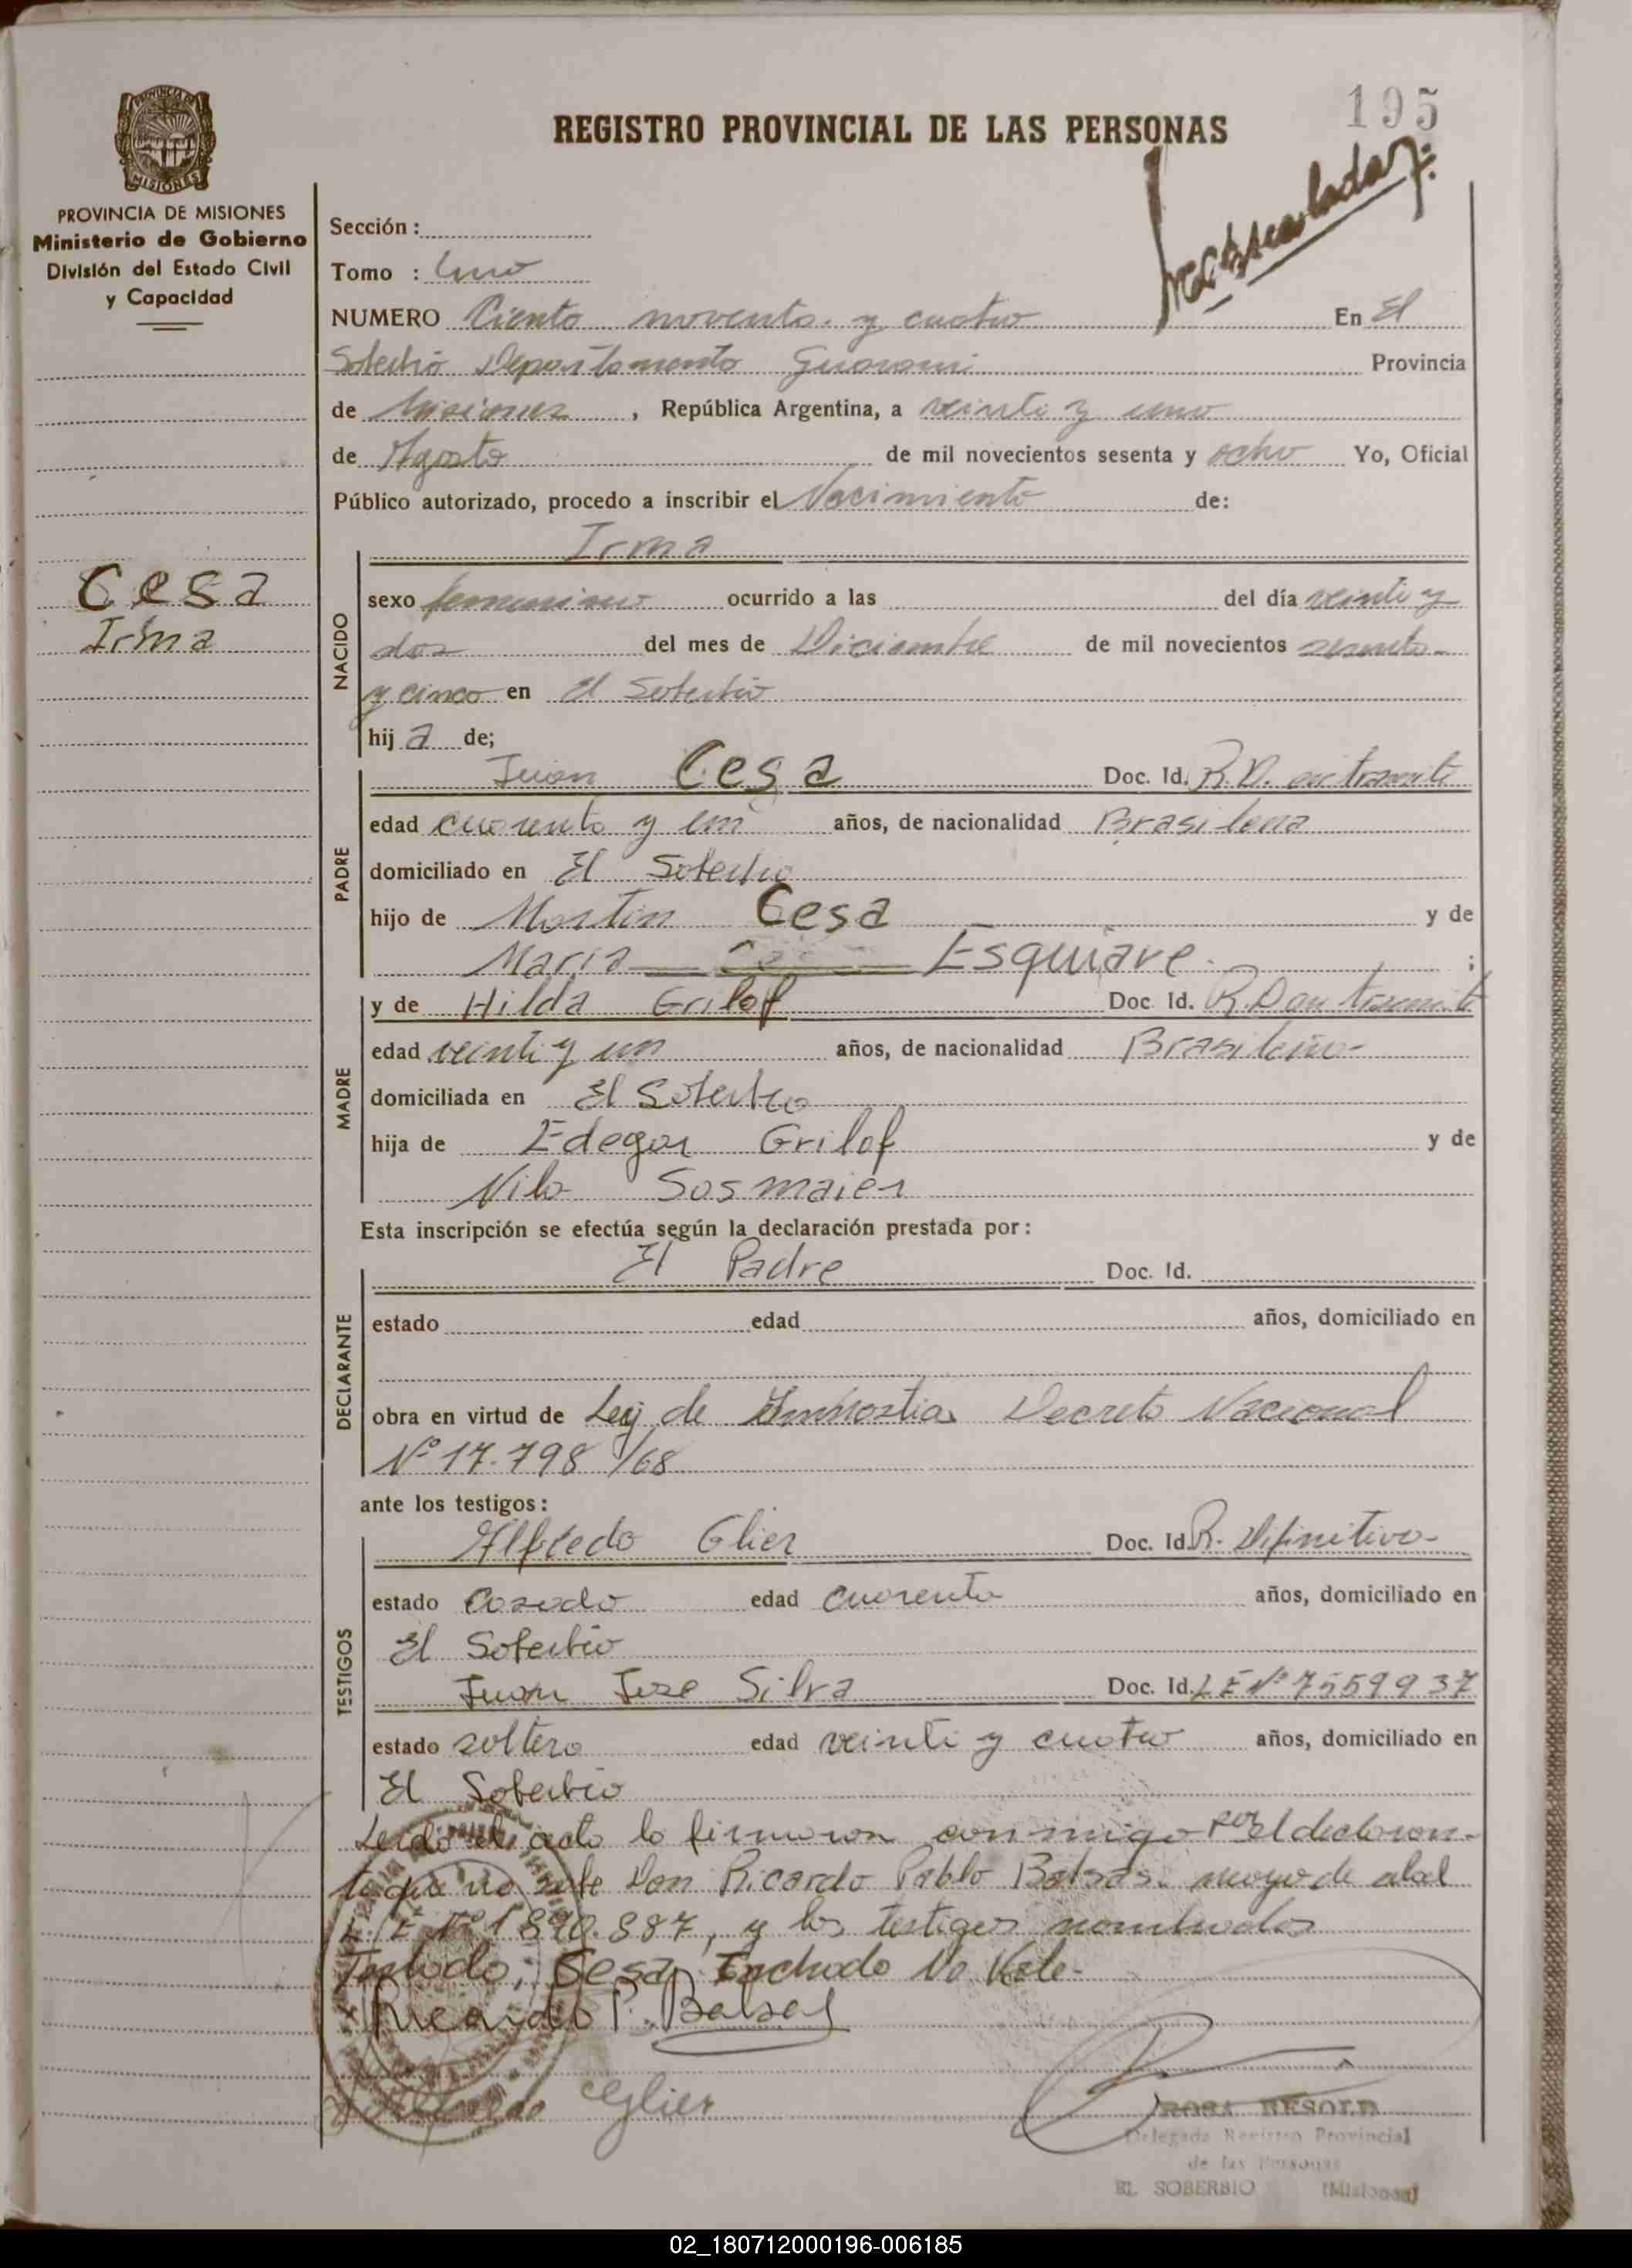 195
REGISTRO PROVINCIAL DE LAS PERSONAS
PROVINCIA DE
MISIONES
PROVINCIA DE MISIONES
Ministerio de Gobierno
División del Estado Civil
y Capacidad
Sección :
Tomo : Uno
NUMERO Ciento noventa y cuatro En El
Soberbio Departamento Guarani Provincia
de Misiones , República Argentina, a veinti y uno
de Agosto de mil novecientos sesenta y ocho Yo, Oficial
Público autorizado, procedo a inscribir el Nacimiento de:
Cesa
Irma
NACIDO
Irma
sexo femenino ocurrido a las del día veinti y
dos del mes de Diciembre de mil novecientos sesenta
y cinco en El Soberbio
hij a de;
PADRE
Juan Cesa Doc. Id. R.D. en tramite
edad cuarenta y un años, de nacionalidad Brasilera
domiciliado en El Soberbio
hijo de Martin Cesa y de
Maria Esquiave ;
MADRE
y de Hilda Grilof Doc. Id. R.D en tramite
edad veinti y un años, de nacionalidad
domiciliada en El Soberbio
hija de Edegar Grilof y de
Sosmaier
Esta inscripción se efectúa según la declaración prestada por :
DECLARANTE
El Padre Doc. Id.
estado edad años, domiciliado en
obra en virtud de Ley de Decreto Nacional
Nº 17.798/68
ante los testigos :
TESTIGOS
Alfredo Glier Doc. Id. R. Difinitivo
estado Casado edad cuarenta años, domiciliado en
El Soberbio
Juan Jose Silva Doc. Id. LE Nº 7559937
estado soltero edad veinti y cuatro años, domiciliado en
El Soberbio
Leido el acta lo firmaron conmigo por el declaran-
te que no sabe Don Ricardo Pablo mayor de edad
L.E Nº 1890.887, y los testigos nombrados
Testado; Cesa, Tachado No Vale-
Ricardo P.
Alfredo Glier
ROSA BESOLD
Delegada Registro Provincial
de las Personas
EL SOBERBIO (Misiones)
02_180712000196-006185